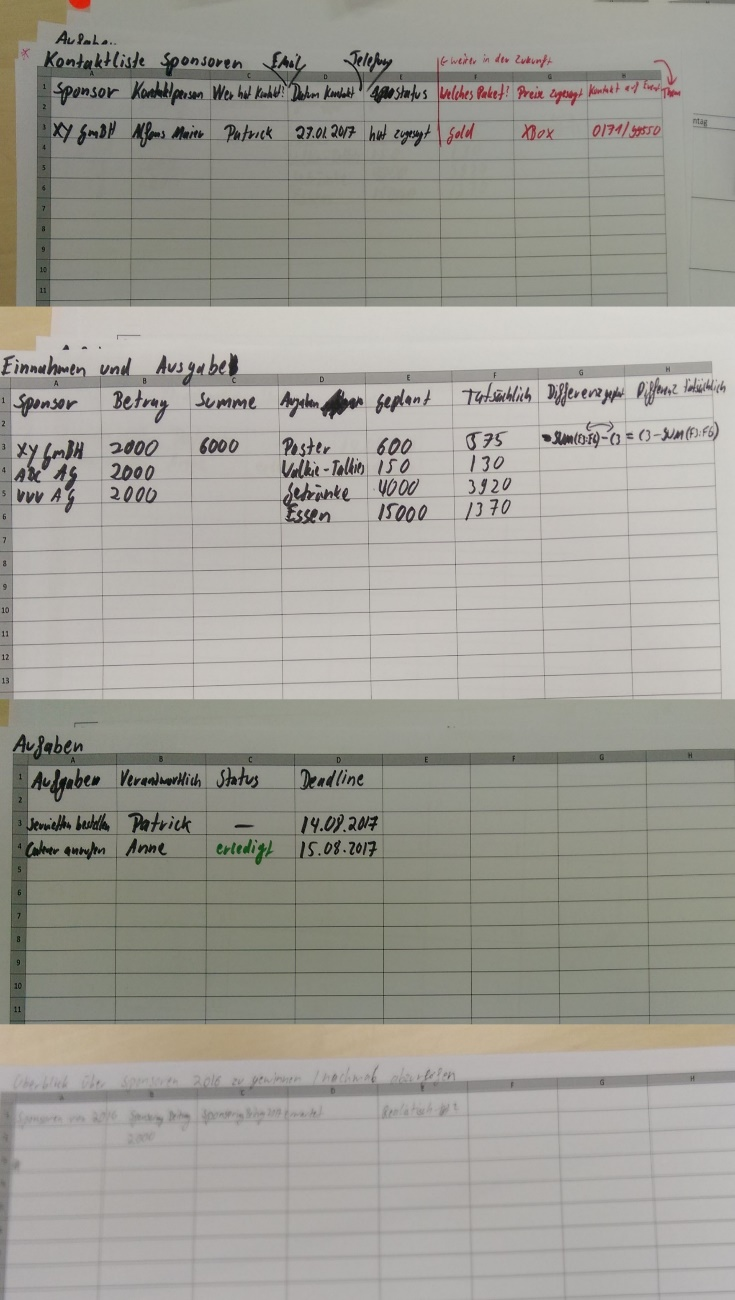 Aufgaben
* Kontaktliste Sponsoren EMail Telefon ↳ weiter in der Zukunft
A B C D E F G H
1 Sponsor Kontaktperson Wer hat Kontakt? Datum Kontakt Status Welches Paket? Preise zugesagt Kontakt auf Event
2
3 XY GmBH Alfons Maier Patrick 27.01.2017 hat zugesagt Gold XBox
4
5
6
7
8
9
10
11
Einnahmen und Ausgaben
A B C D E F G H
1 Sponsor Betrag Summe Ausgaben geplant Tatsächlich Differenz geplant Differenz tatsächlich
2
3 XY GmBH 2000 6000 Poster 600 575 = C3-SUM(F3:F6)
4 ABC AG 2000 Walkie-Talkies 150 130
5 VVV AG 2000 Getränke 4000 3920
6 Essen 15000 1370
7
8
9
10
11
12
13
Aufgaben
A B C D E F G H
1 Aufgaben Verantwortlich Status Deadline
2
3 Servietten bestellen Patrick — 14.08.2017
4 Caterer anrufen Anne erledigt 15.08.2017
5
6
7
8
9
10
11
Überblick über Sponsoren 2016 zu gewinnen
Sponsoren von 2016
2000